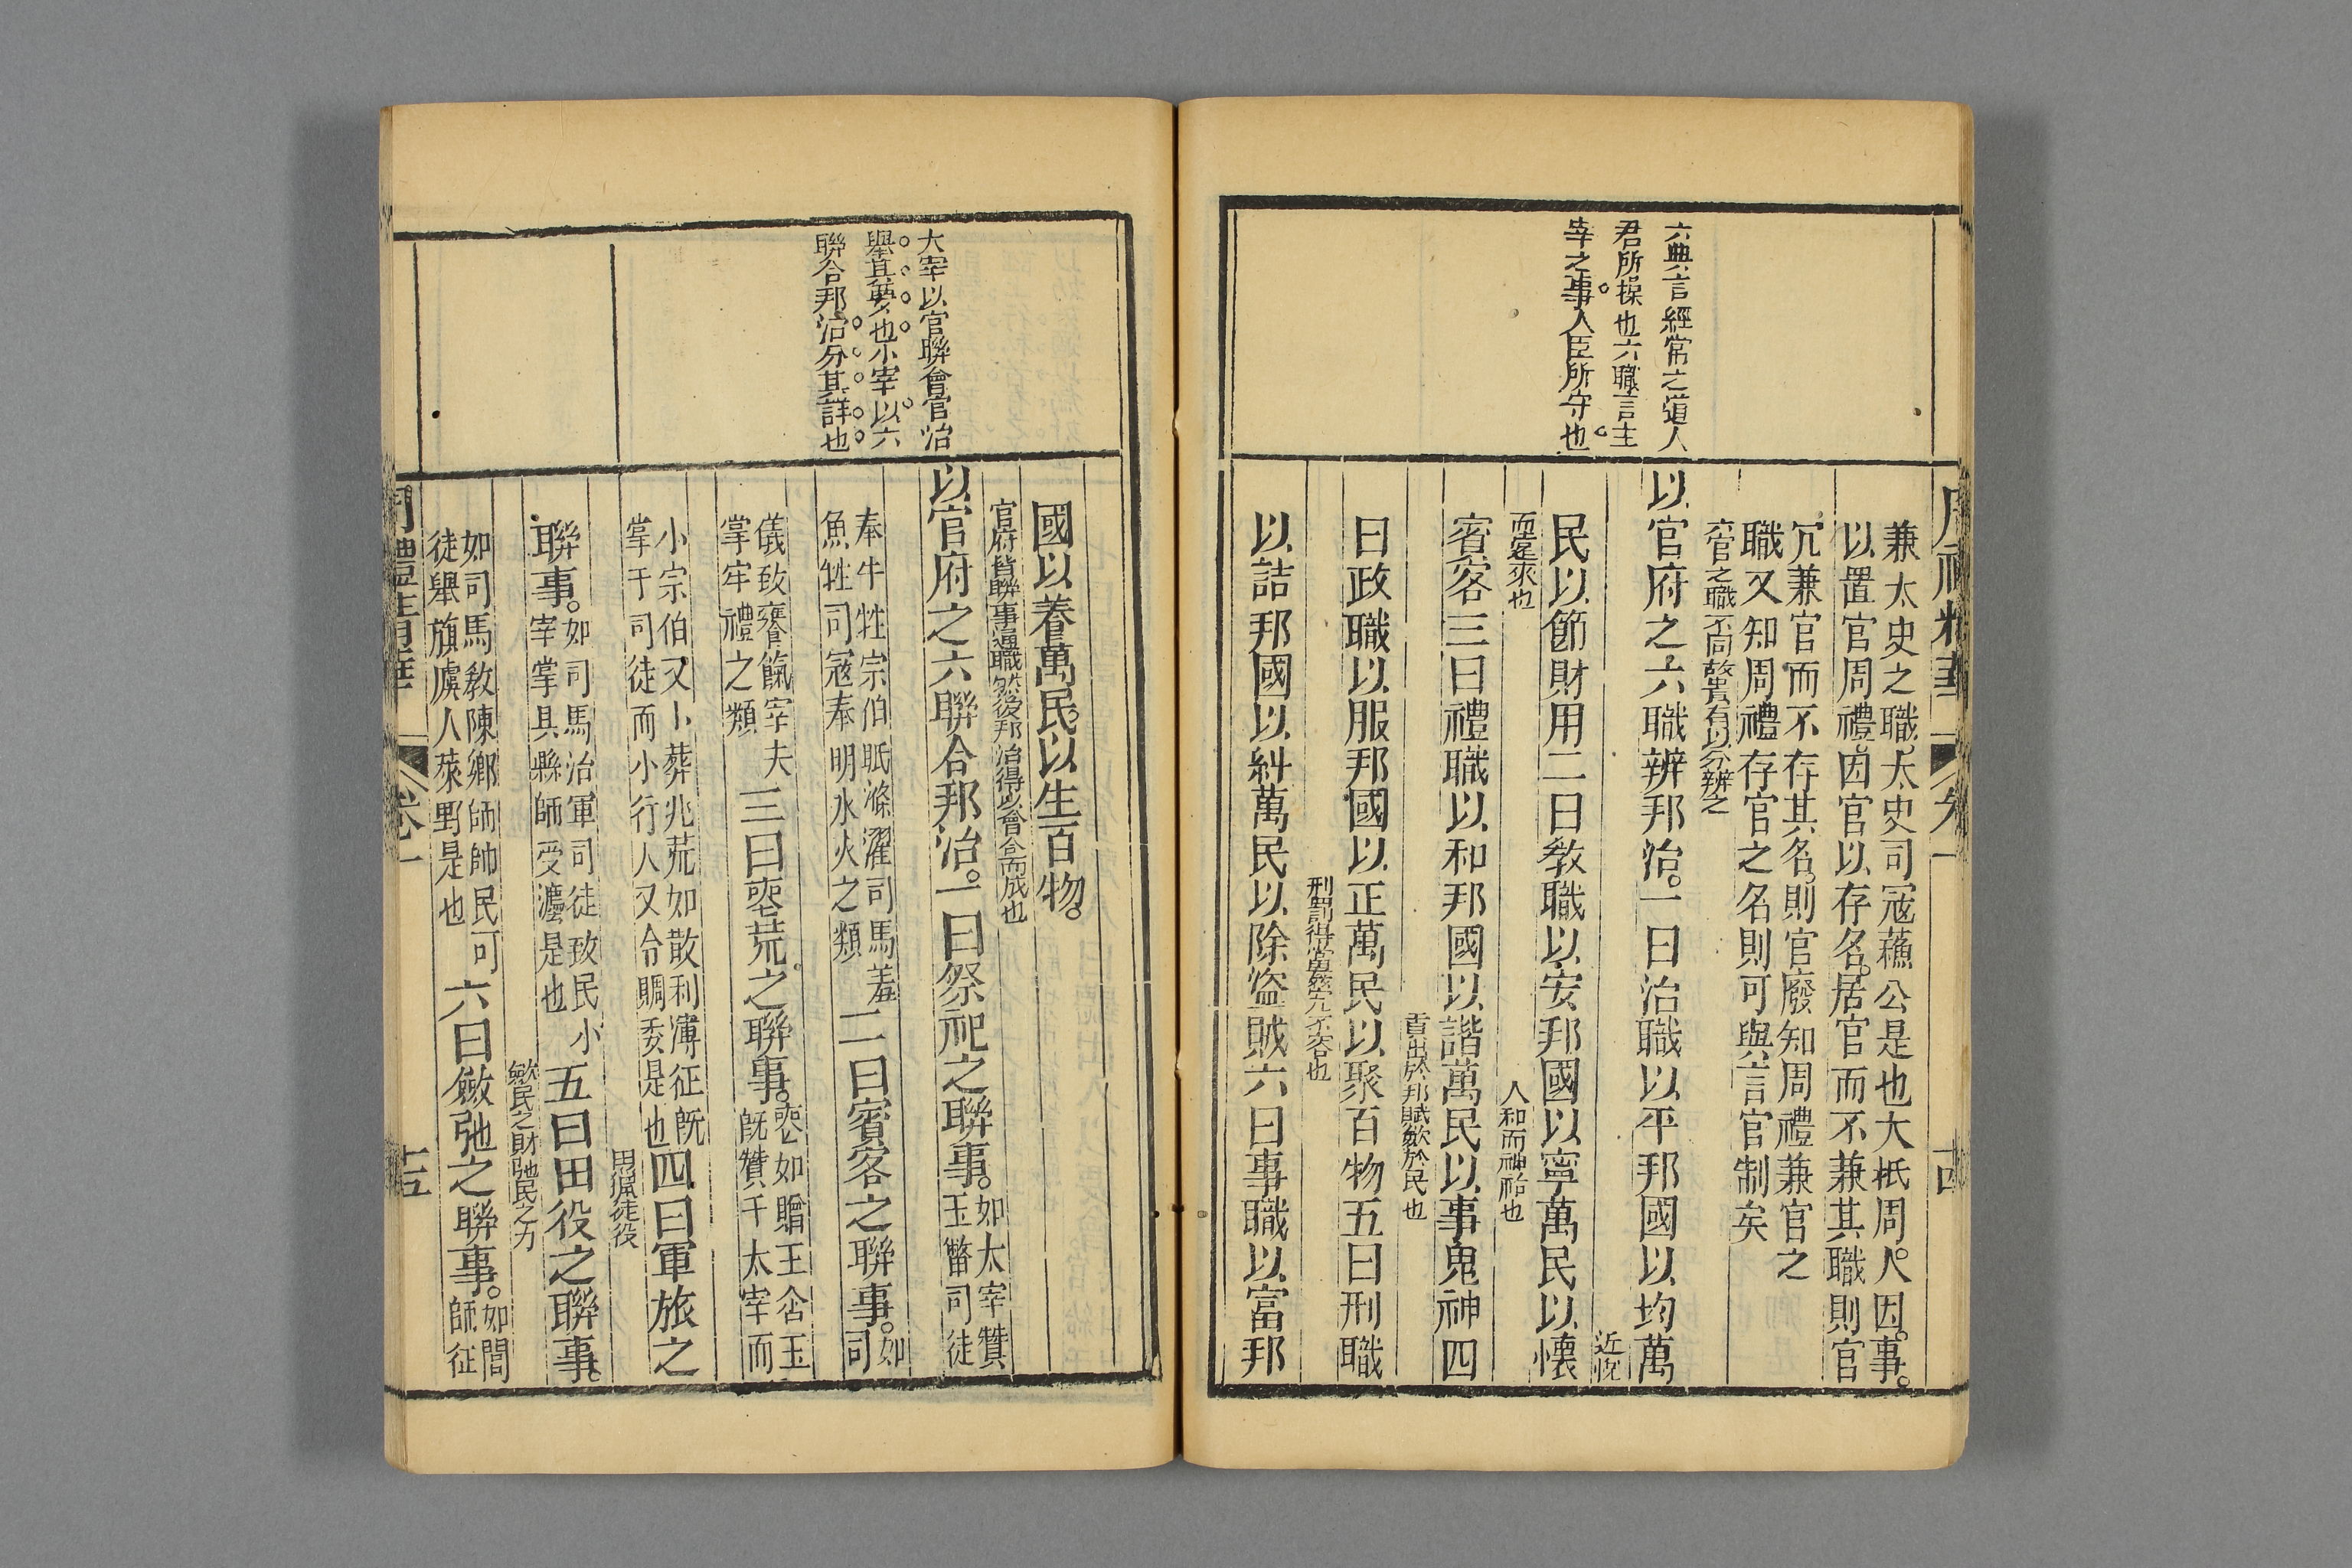 六典言經常之道人
君所操也六職言主
宰之事人臣所守也
兼太史之職太史司冦蘓公是也大抵周人因事
以置官周禮因官以存名居官而不兼其職則官
冗兼官而不存其名則官廢知周禮兼官之
職又知周禮存官之名則可與言官制矣
六官之職不同故貴有以分辨之
以官府之六職辨邦治一曰治職以平邦國以均萬
近悅
民以節財用二曰敎職以安邦國以寧萬民以懷
而遠來也
人和而神格也
賓客三曰禮職以和邦國以諧萬民以事鬼神四
貢出於邦賦斂於民也
曰政職以服邦國以正萬民以聚百物五曰刑職
刑罰得當姦宄不容也
以詰邦國以糾萬民以除盜賊六曰事職以富邦
大宰以官聯會官治
舉其要也小宰以六
聯合邦治分其詳也
國以養萬民以生百物
官府皆聯事通職然後邦治得以會合而成也
以官府之六聯合邦治一曰祭祀之聯事如太宰贊
玉幣司徒
奉牛牲宗伯眂滌濯司馬羞
魚牲司冦奉明水火之類
二曰賓客之聯事如
司
儀致饔餼宰夫
掌牢禮之類
三曰喪荒之聯事喪如贈玉含玉
旣贊于太宰而
小宗伯又卜葬兆荒如散利薄征旣
掌于司徒而小行人又令賙委是也
四曰軍旅之
田獵徒役
聯事如司馬治軍司徒致民小
宰掌具縣師受灋是也
五曰田役之聯事
斂民之財弛民之力
如司馬敎陳鄉師帥民司
徒舉旗虞人萊野是也
六曰斂弛之聯事如閭
師征
周禮精華
卷一
十五